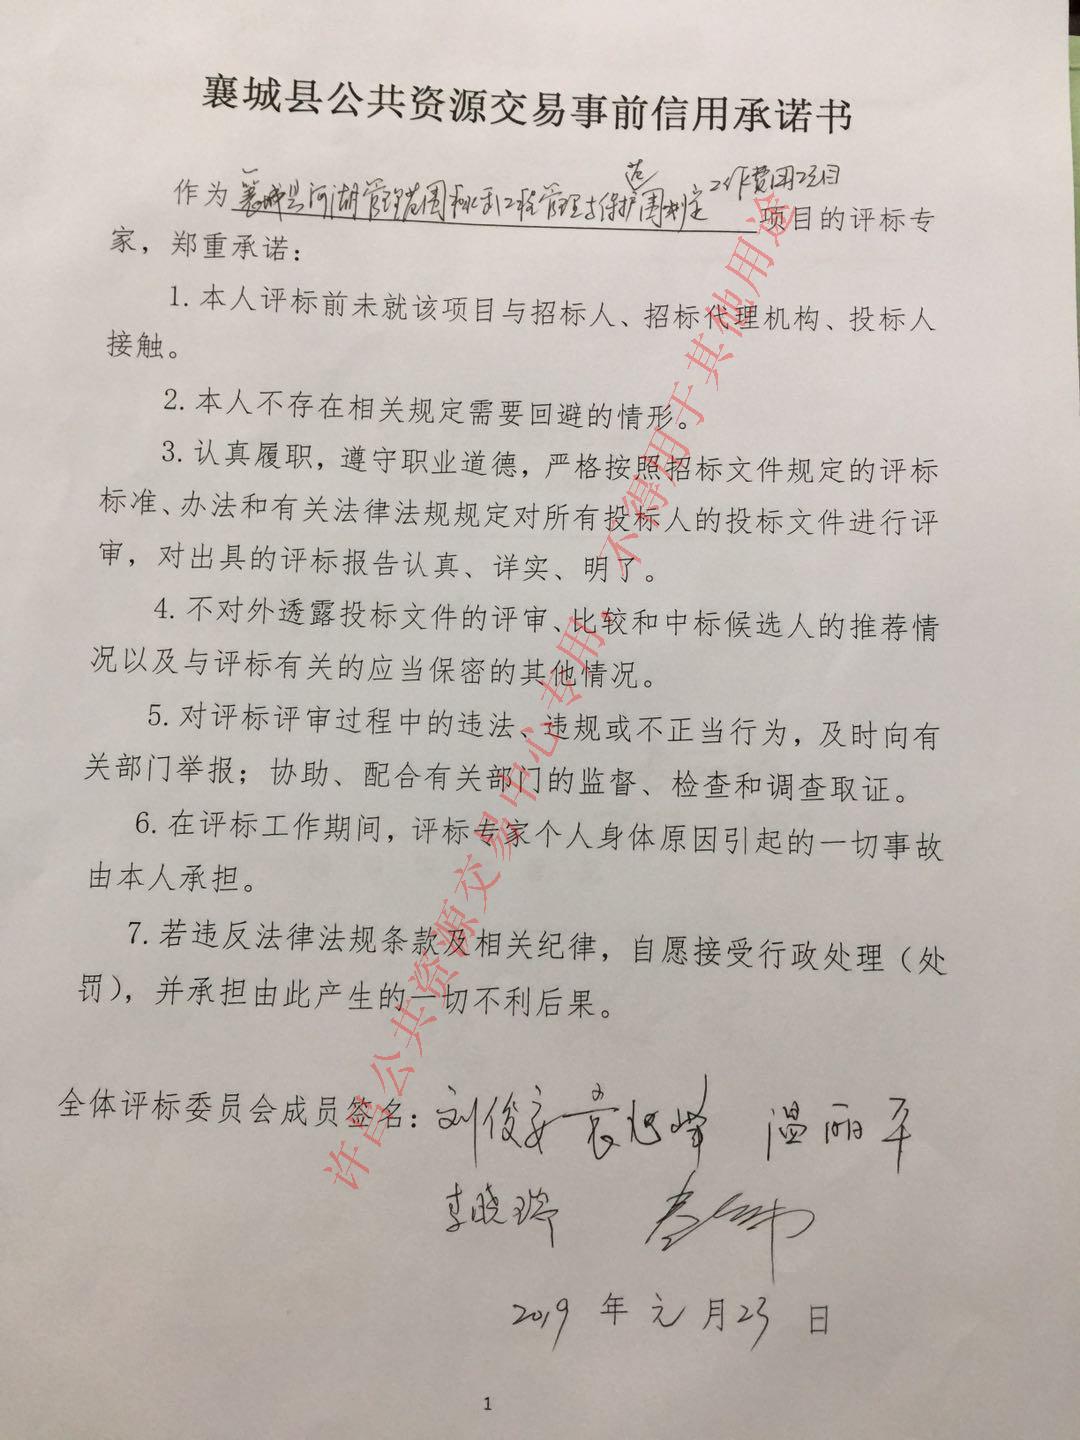 襄城县公共资源交易事前信用承诺书
作为襄城县河湖管理范围和水利工程管理与保护范围划定工作费用项目项目的评标专
家，郑重承诺：
1.本人评标前未就该项目与招标人、招标代理机构、投标人
接触。
2.本人不存在相关规定需要回避的情形。
3.认真履职，遵守职业道德，严格按照招标文件规定的评标
标准、办法和有关法律法规规定对所有投标人的投标文件进行评
审，对出具的评标报告认真、详实、明了。
4.不对外透露投标文件的评审、比较和中标候选人的推荐情
况以及与评标有关的应当保密的其他情况。
5.对评标评审过程中的违法、违规或不正当行为，及时向有
关部门举报；协助、配合有关部门的监督、检查和调查取证。
6.在评标工作期间，评标专家个人身体原因引起的一切事故
由本人承担。
7.若违反法律法规条款及相关纪律，自愿接受行政处理（处
罚），并承担由此产生的一切不利后果。
全体评标委员会成员签名：刘俊安 袁旭峰 温丽平
李晓瑞
2019 年 元 月 23 日
1
许昌公共资源交易中心专用，不得用于其他用途